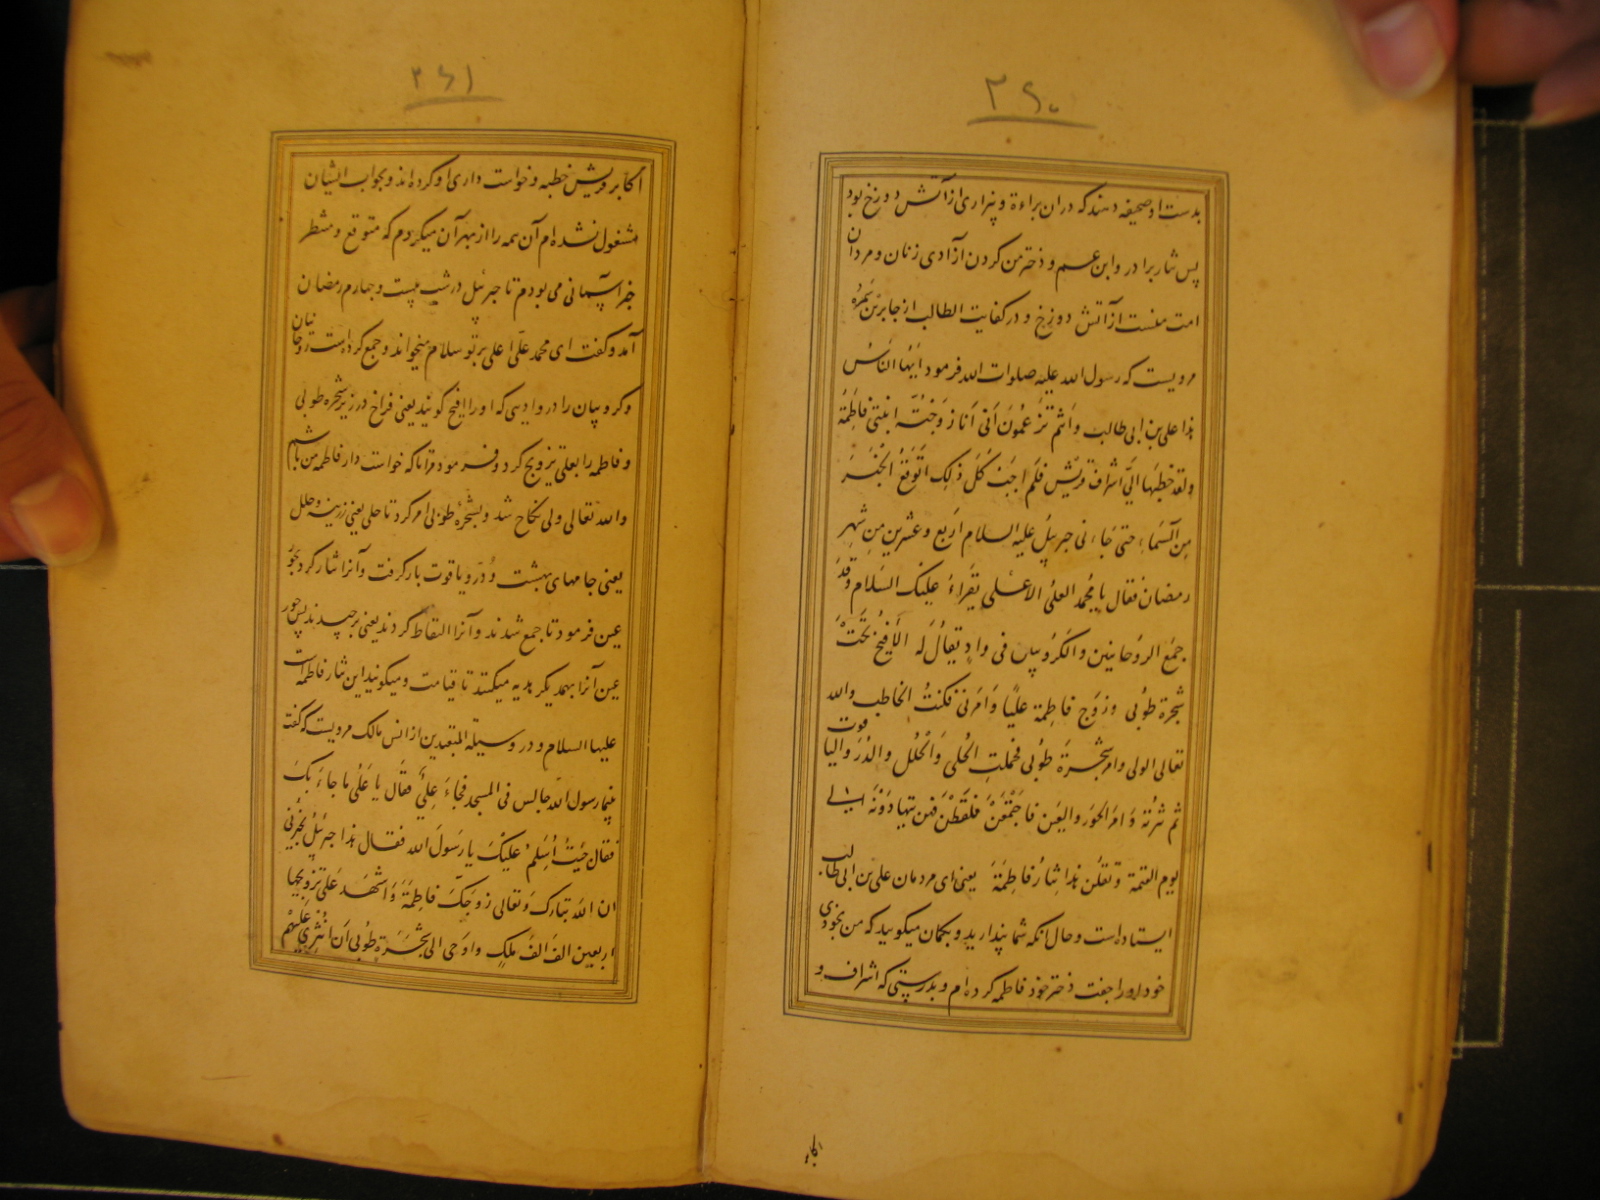 ۳۶۰
بدست او صحیفه دهند که دران براءة و بیزاری از آتش دوزخ بود
پس نثار برادر و ابن عم و دختر من کردن آزادی زنان و مردان
امت منست از آتش دوزخ و در کفایت الطالب از جابر بن سَمُرَه
مرویست که رسول الله علیه صلوات الله فرمود اَیُّها النّاسُ
هذا علی بن ابی طالب و اَنتُم تَزعُمُونَ اَنّی اَنَا زَوَّجتُه اِبنَتی فاطِمَةَ
ولقد خَطَبَها اِلَیَّ اشراف قریش فلَم اُجِب کُلُّ ذلِک اَتَوَقَّعُ الخَبَرَ
مِنَ السَّماءِ حتی جَاءنی جبرئیل علیه السلام اَربَع وعشرین مِن شهر
رمضان فقال یا مُحمد العَلیُّ الاعلی یَقرَاءُ عَلَیکَ السَّلام وَقَد
جَمَعَ الروحانیین والکَرُوبیین فی وادٍ یُقالُ لَه الاَفیَحُ تَحتَ
شَجَرة طُوبی وزَوَّجَ فاطِمة عَلیًّا وَاَمَرنی فَکُنتُ الخاطِب والله
تعالی الولی وامر شَجَرَةَ طُوبی فحَمَلَت الحُلی وَالحُلَل والدُرَّ والیاقوت
ثم نَثَرَتهُ وَاَمَرَ الحُورَ والعِینَ فاجتَمَعنَ فلَقَطنَ فهُن یتهادَونَهُ اِلی
یوم القیمة وتَقُلنَ هذا نِثارُ فاطِمَةَ یعنی ای مردمان علی بن ابی طالب
ایستاده است و حال آنکه شما پندارید و بگمان میگویید که من بخودی
خود او را جفت دختر خود فاطمه کرده‌ام و بدرستی که اشراف و
اکابر
۳۶۱
اکابر قریش خطبه و خواست داری او کرده اند و بجواب ایشان
مشغول نشده ام آن همه را از بهر آن میکردم که متوقع و منتظر
خبر آسمانی می بودم تا جبرئیل در شب بیست و چهارم رمضان
آمد و گفت ای محمد علیّ اعلی بر تو سلام میخواند و جمع کرده است روحانیان
و کروبیان را در وادیی که او را افیح گویند یعنی فراخ در زیر شجره طوبی
و فاطمه را بعلی تزویج کرد و فرمود مرا تا که خواست دار فاطمه من باشم
والله تعالی ولی نکاح شد و بشجره طوبی امر کرد تا حلی یعنی زرینه و حلل
یعنی جامهای بهشت و دُرّ و یاقوت بار گرفت و آنرا نثار کرد و بحور
عین فرمود تا جمع شدند و آنرا التقاط کردند یعنی برچیدند پس حور
عین آنرا بهمدیگر هدیه میکنند تا قیامت و میگویند این نثار فاطمه است
علیها السلام و در وسیلة المتعبدین از انس مالک مرویست که گفت
بینما رسول الله جالس فی المسجد فجاءَ عِلیٌّ فقال یا عَلیُّ ما جاءَ بکَ
فقال جِئتُ اُسَلِّم عَلَیکَ یا رسَولَ الله فقال هذا جبرئیلُ یُخبِرُنی
ان الله تبارک وَتعالی زَوَّجَکَ فاطِمَةَ وَاَشهَدَ عَلی تزویجها
اربعین الف اَلف مَلَکٍ واَوحی الی شَجَرَةِ طُوبی اَن اُنثُری عَلَیهِم